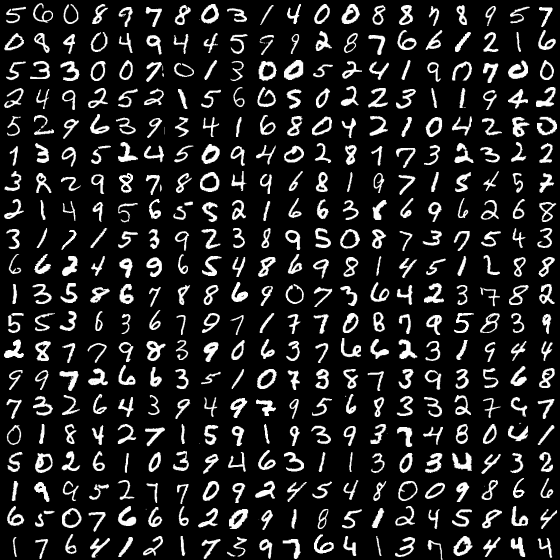 5 6 0 8 9 7 8 0 3 1 4 0 0 8 8 7 8 9 5 7
0 8 9 0 4 9 4 4 5 7 9 2 8 7 6 6 1 2 1 6
5 3 3 0 0 7 0 1 3 0 0 5 2 4 1 9 7 7 0 0
2 4 9 2 5 2 1 5 6 0 5 0 2 2 3 1 1 9 4 2
5 2 9 6 3 9 3 4 1 6 8 0 4 2 1 0 4 2 8 0
1 3 9 5 2 4 5 0 9 4 0 2 8 1 7 3 2 3 2 2
3 8 2 9 8 7 8 0 4 9 6 8 1 9 7 1 5 4 5 7
2 1 4 9 5 6 5 5 2 1 6 6 3 8 6 9 6 2 6 8
3 1 7 1 5 3 9 2 3 8 9 5 0 8 7 3 7 5 4 3
6 6 2 4 9 9 6 5 4 8 6 9 8 1 4 5 1 2 8 8
1 3 5 8 6 7 8 8 6 9 0 7 3 6 4 2 3 7 8 2
5 5 3 6 3 6 7 9 7 1 7 7 0 8 7 9 5 8 3 9
2 8 7 7 9 8 3 9 0 6 3 7 6 6 2 3 1 9 4 4
9 9 7 2 6 6 3 5 1 0 7 3 8 7 3 9 3 5 6 8
7 3 2 6 4 3 9 4 9 7 9 5 6 8 3 3 2 7 9 7
0 1 8 4 2 7 1 5 9 1 9 3 9 3 7 4 8 0 4 1
5 0 2 6 1 0 3 9 4 6 3 1 1 3 0 3 4 4 3 2
1 9 9 5 2 7 7 0 9 2 4 5 4 8 0 0 9 8 6 6
6 5 0 7 6 6 6 2 0 9 1 8 5 1 2 4 5 8 6 4
1 7 6 4 1 2 1 7 3 9 7 6 4 1 3 7 0 4 4 4